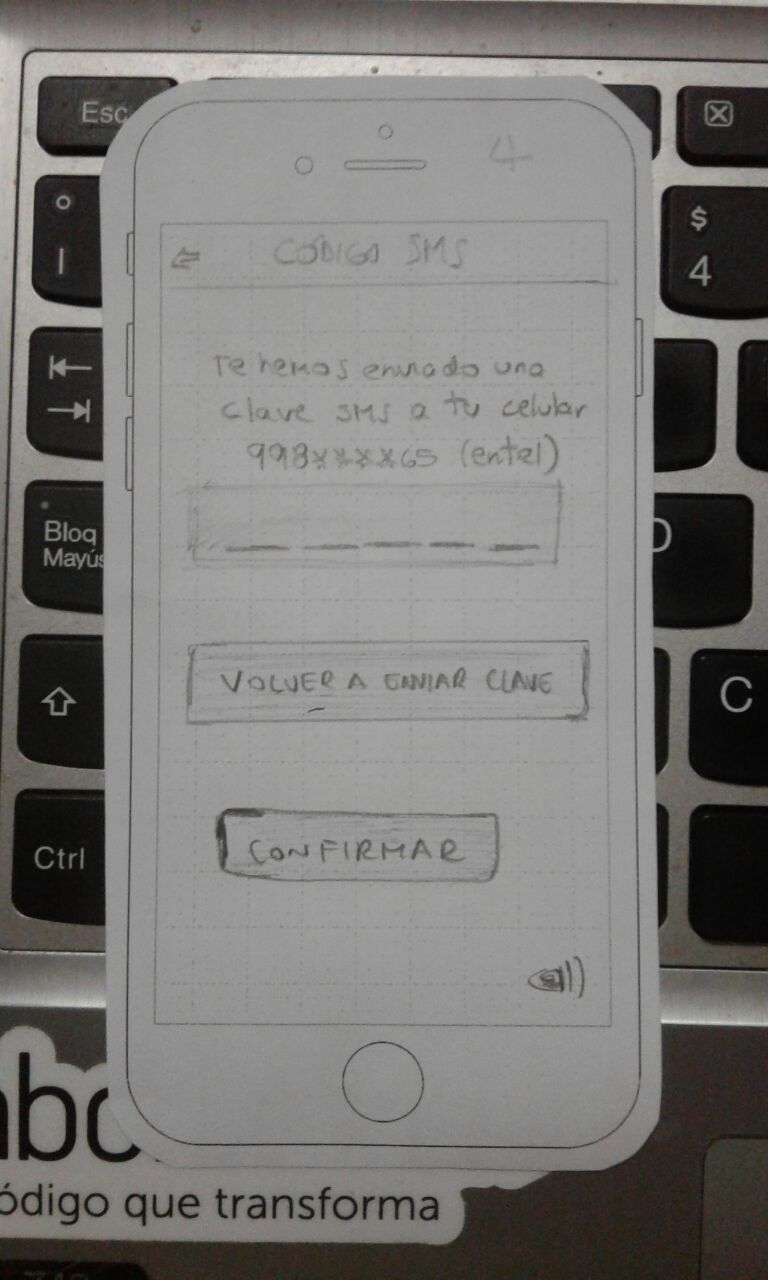 Esc
4
$
4
°
I
CÓDIGO SMS
Te hemos enviado una
clave SMS a tu celular
998****65 (entel)
Bloq
Mayús
VOLVER A ENVIAR CLAVE
C
Ctrl
CONFIRMAR
ódigo que transforma